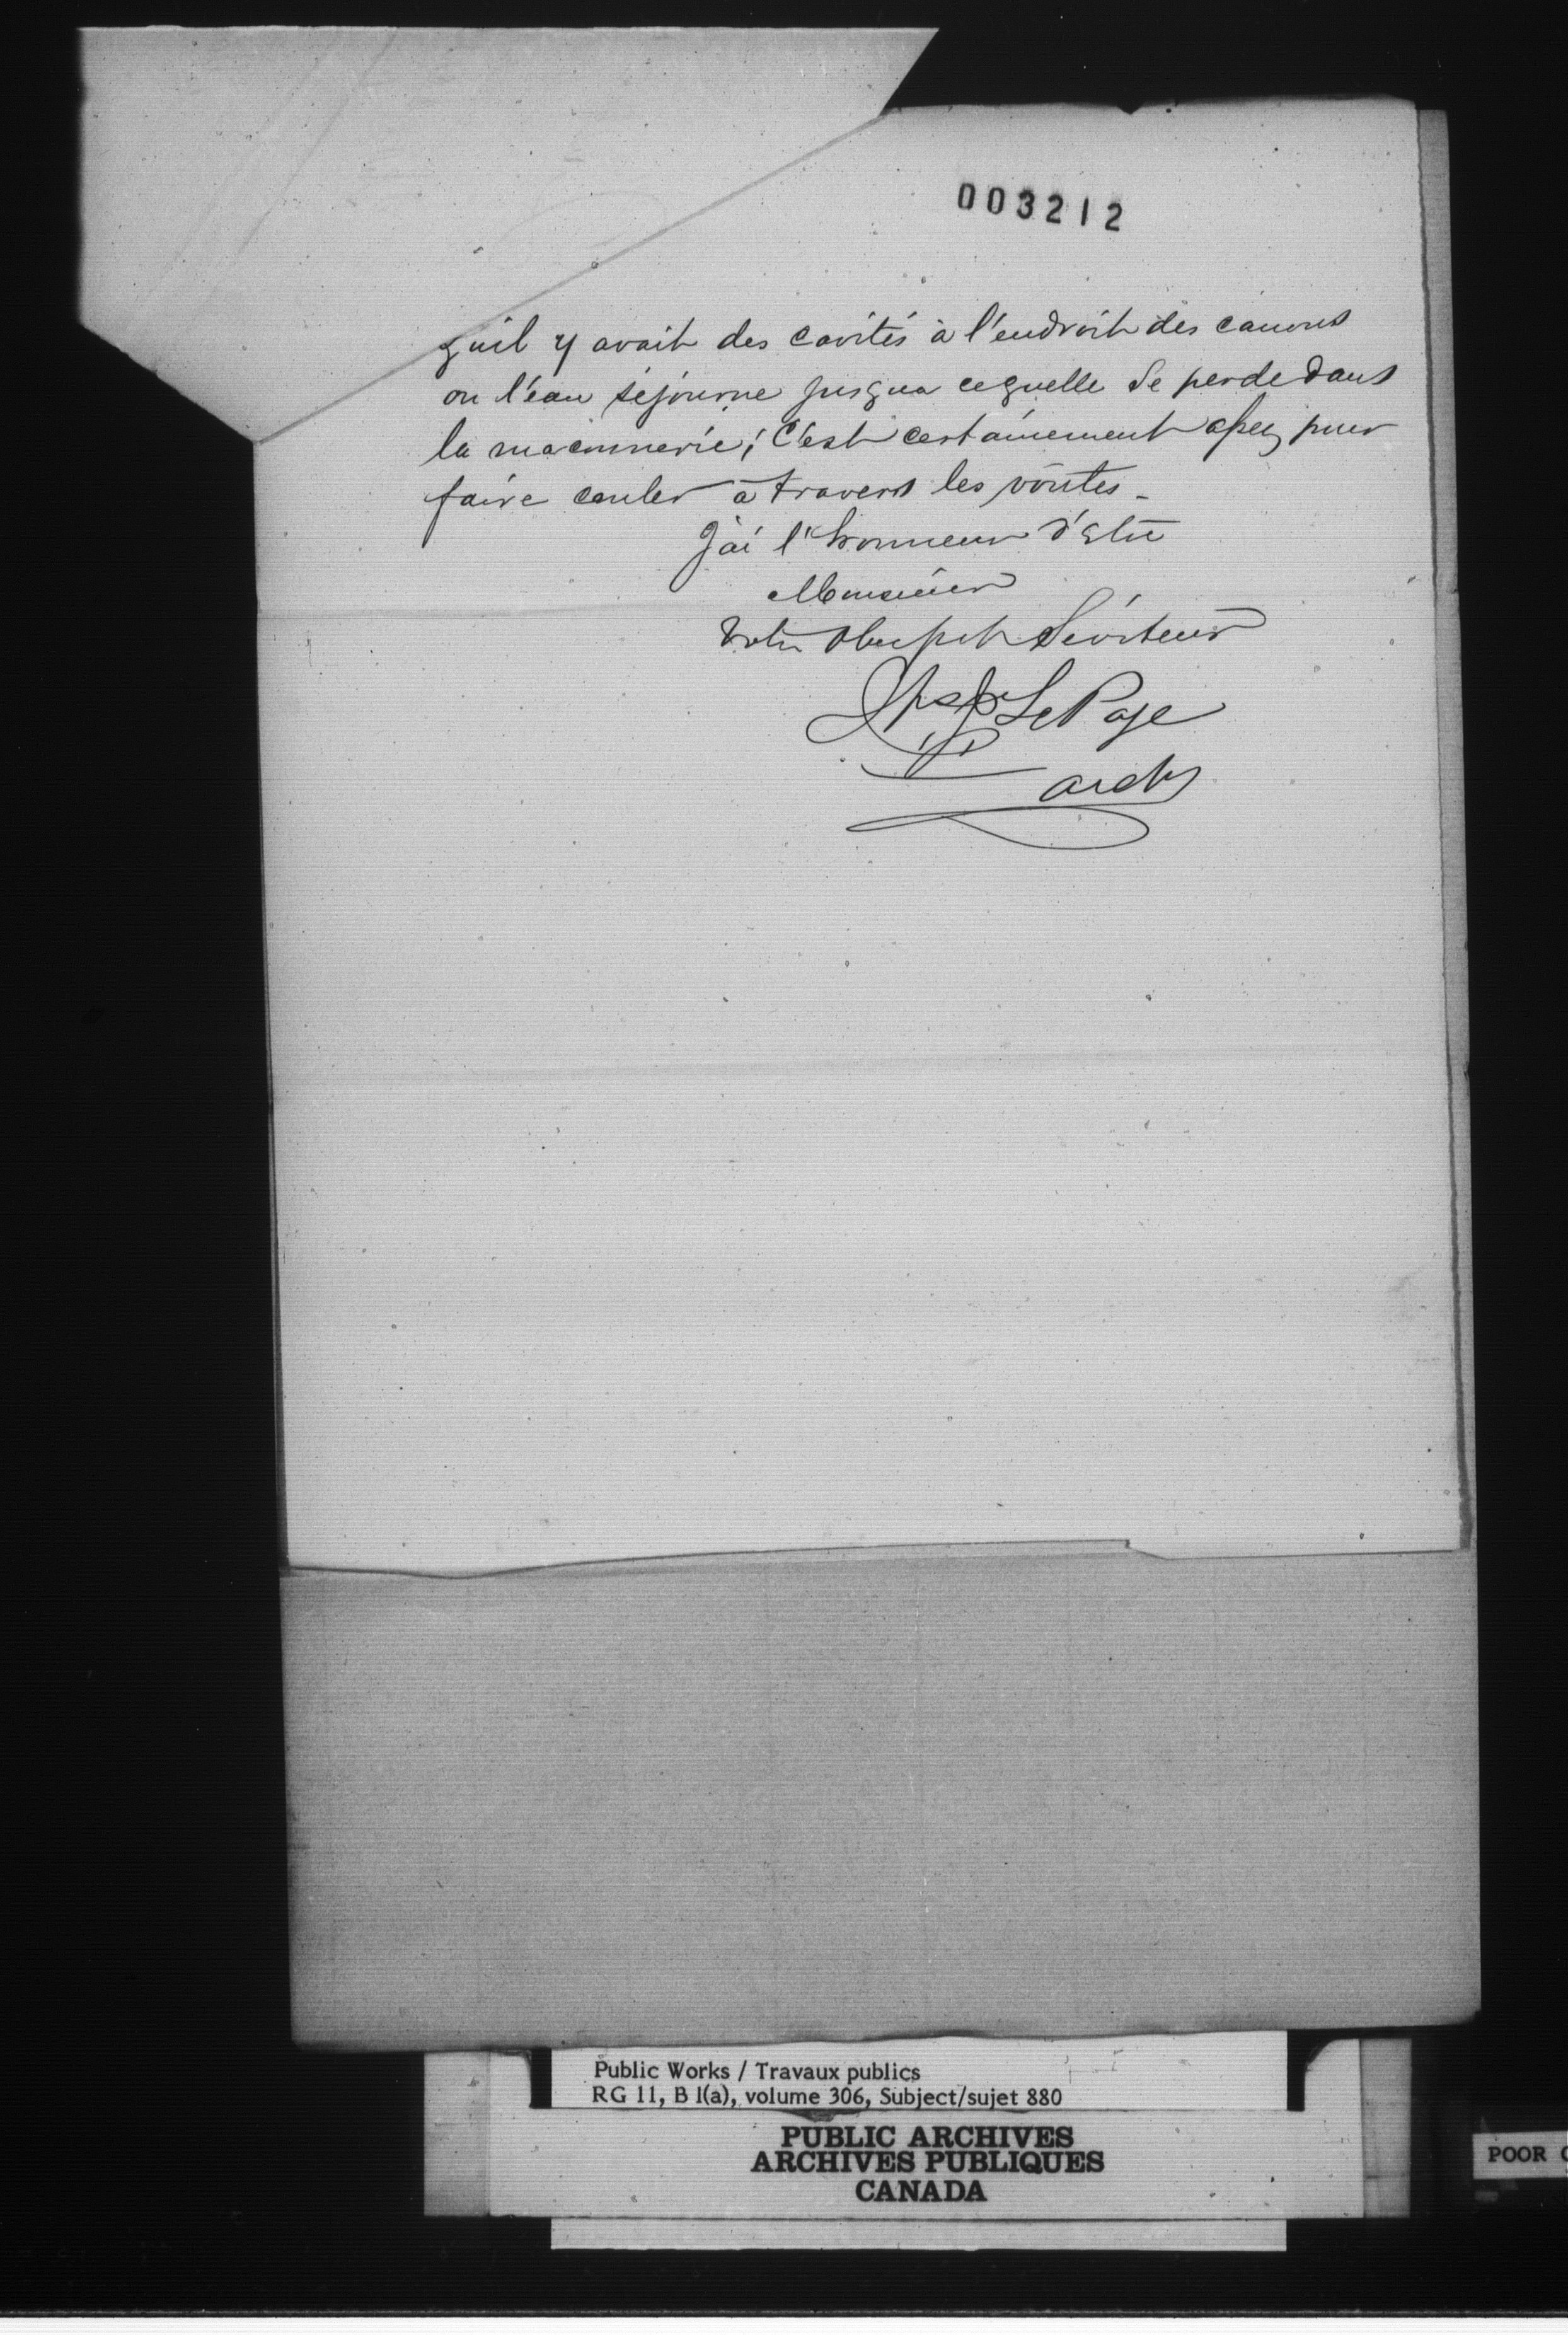 003212
quil y avait des cavités à l'endroit des canons
ou l'eau séjourne jusqua cequelle se perde dans
la maconnerie; C'est certainement assez pour
faire couler à travers les voûtes -
J'ai l'honneur d'Etre
Monsieur
Votre Serviteur
LePage
archt
Public Works / Travaux publics
RG 11, B 1(a), volume 306, Subject/sujet 880
PUBLIC ARCHIVES
ARCHIVES PUBLIQUES
CANADA
POOR